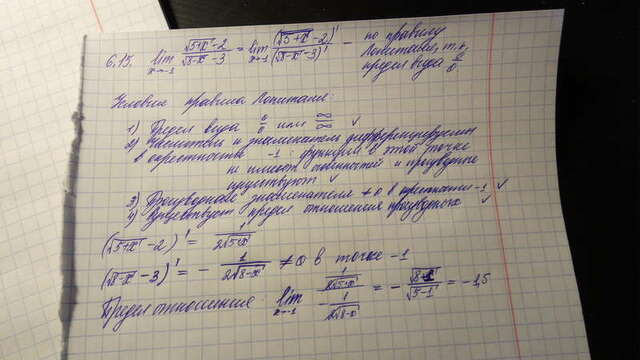 6.15. lim x→-1 (√(5+x) - 2)/(√(8-x) - 3) = lim x→-1 (√(5+x) - 2)'/(√(8-x) - 3)' - по правилу
Лопиталя, т.к.
предел вида 0/0.
Условия правила Лопиталя:
1) Предел вида 0/0 или ∞/∞ ✓
2) Числитель и знаменатель дифференцируемы
в окрестности -1: функции в этой точке
не имеют особенностей и производные
существуют ✓
3) Производная знаменателя ≠ 0 в окрестности -1 ✓
4) Существует предел отношения производных ✓
(√(5+x) - 2)' = 1/(2√(5+x))
(√(8-x) - 3)' = - 1/(2√(8-x)) ≠ 0 в точке -1
Предел отношения: lim x→-1 (1/(2√(5+x)))/(-1/(2√(8-x))) = - √(8+1)/√(5-1) = -1,5